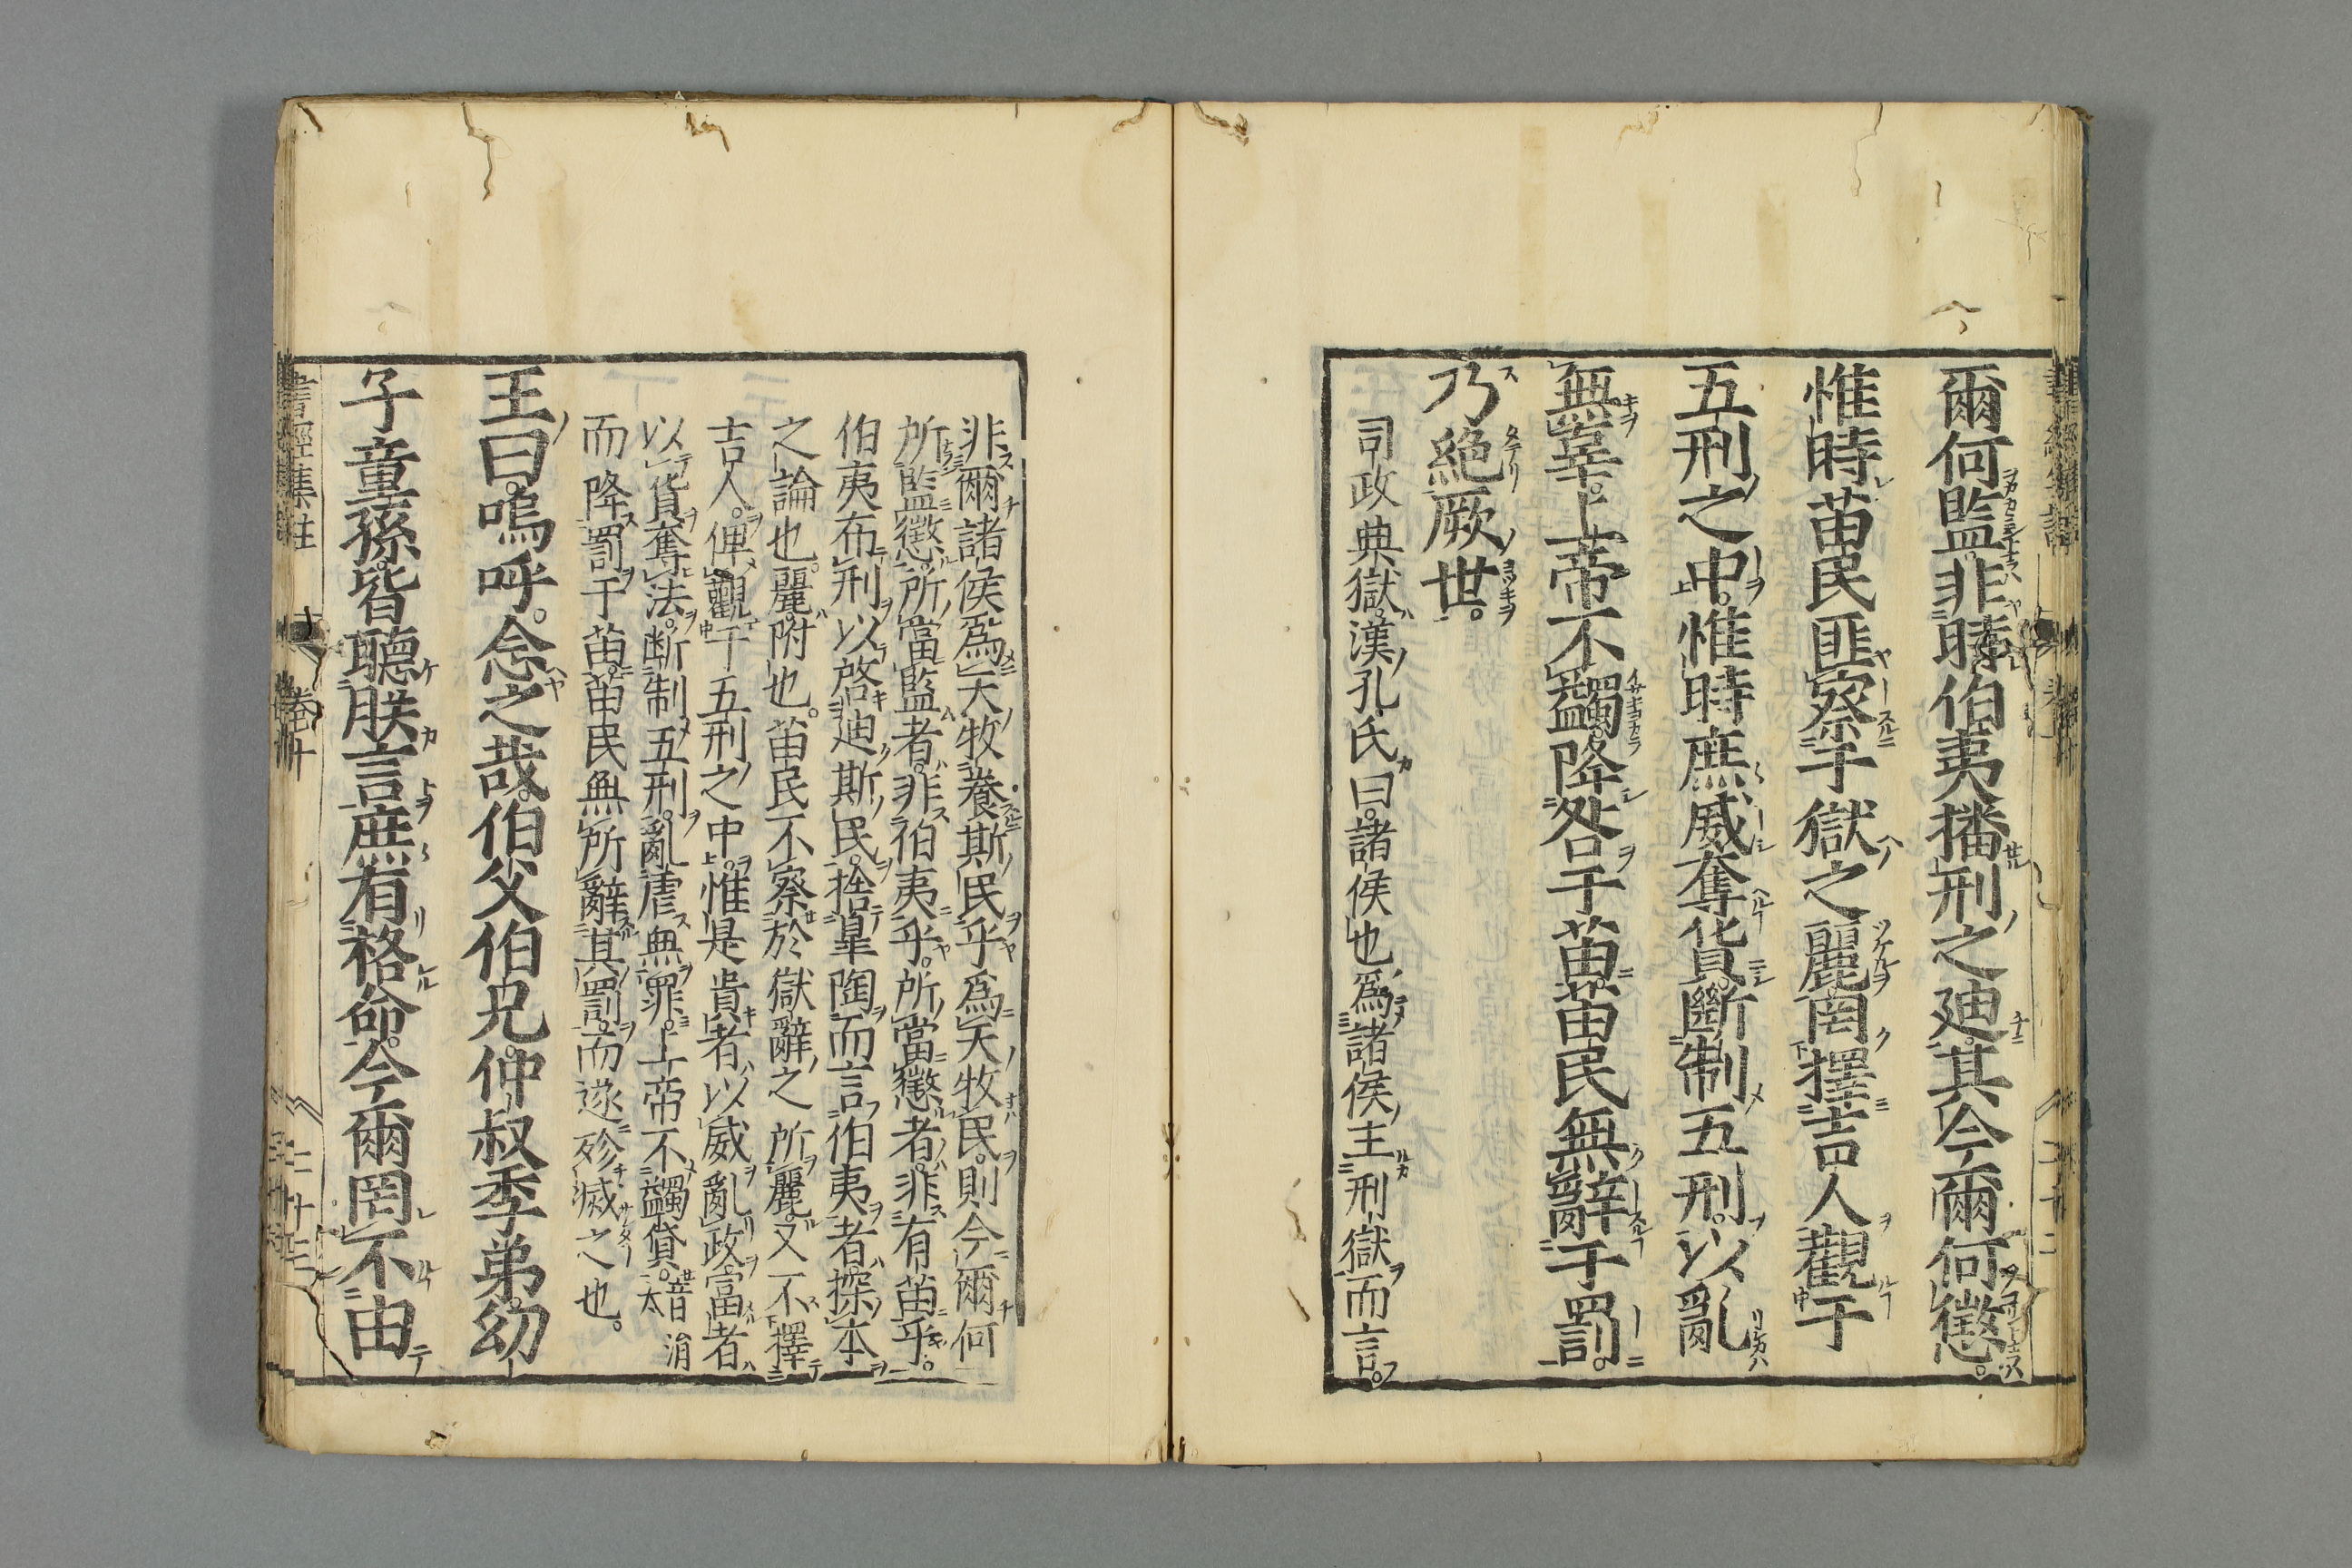 爾何監非時伯夷播刑之迪其今爾何懲。
惟時苗民匪察于獄之麗罔擇吉人觀于
五刑之中。惟時庶威奪貨斷制五刑。以亂
無辜。上帝不蠲降咎于苗。苗民無辭于罰。
乃絶厥世。
司政典獄。漢孔氏曰。諸侯也爲諸侯主刑獄而言。
非爾諸侯爲天牧養斯民乎爲天牧民。則今爾何
所監懲。所當監者。非伯夷乎。所當懲者。非有苗乎。
伯夷布刑以啓迪斯民。捨皐陶而言伯夷者。探本
之論也。麗附也。苗民不察於獄辭之所麗。又不擇
吉人。俾觀于五刑之中。惟是貴者以威亂政。富者
以貨奪法。断制五刑。亂虐無罪。上帝不蠲貸。音太消
而降罰于苗。苗民無所辭其罰。而遂殄滅之也。
王曰。嗚呼。念之哉。伯父伯兄。仲叔季弟。幼
子童孫。皆聽朕言庶有格命。今爾罔不由
書經集註 卷十 二十三